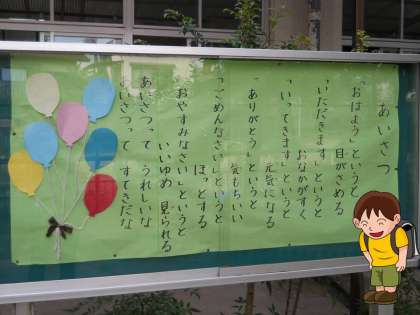 あいさつ
「おはよう」というと
目がさめる
「いただきます」というと
おなかがすく
「いってきます」というと
元気になる
「ありがとう」というと
気もちいい
「ごめんなさい」というと
ほっとする
「おやすみなさい」というと
いいゆめ 見られる
あいさつって うれしいな
あいさつって すてきだな